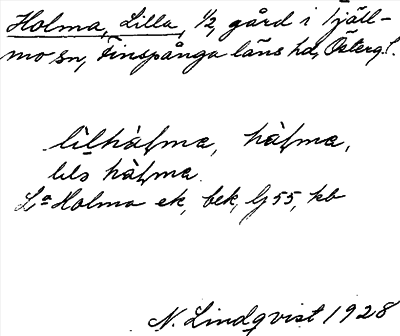 Holma, Lilla, 1/2, gård i Tjäll-
mo sn, Finspånga läns hd, Österg. l.
lìlhàłma, hàłma,
lils hàłma.
La Holma ek, bek, Gj 55, kb
N. Lindqvist 1928